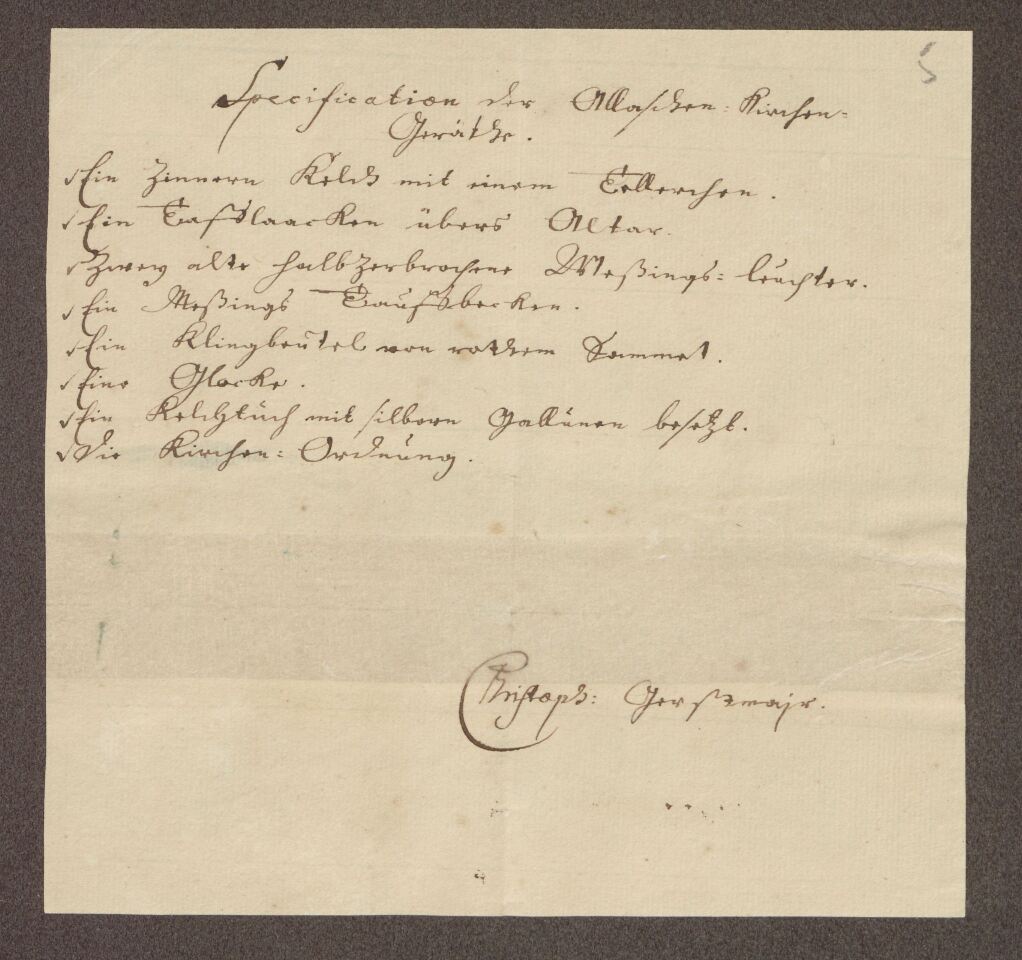 5
Specification der Allaschen-Kirchen-
Geräthe.
Ein Zinnern Kelch mit einem Tellerchen.
Ein Tafellaacken übers Altar.
Zwey alte halb zerbrochene Meßings-leuchter.
Ein Meßings Taufbecken.
Ein Klingbeutel von rothem Sammet.
Eine Glocke.
Ein Kelchtuch mit silbern Gallunen besetzt.
Die Kirchen-Ordnung.
Christoph: